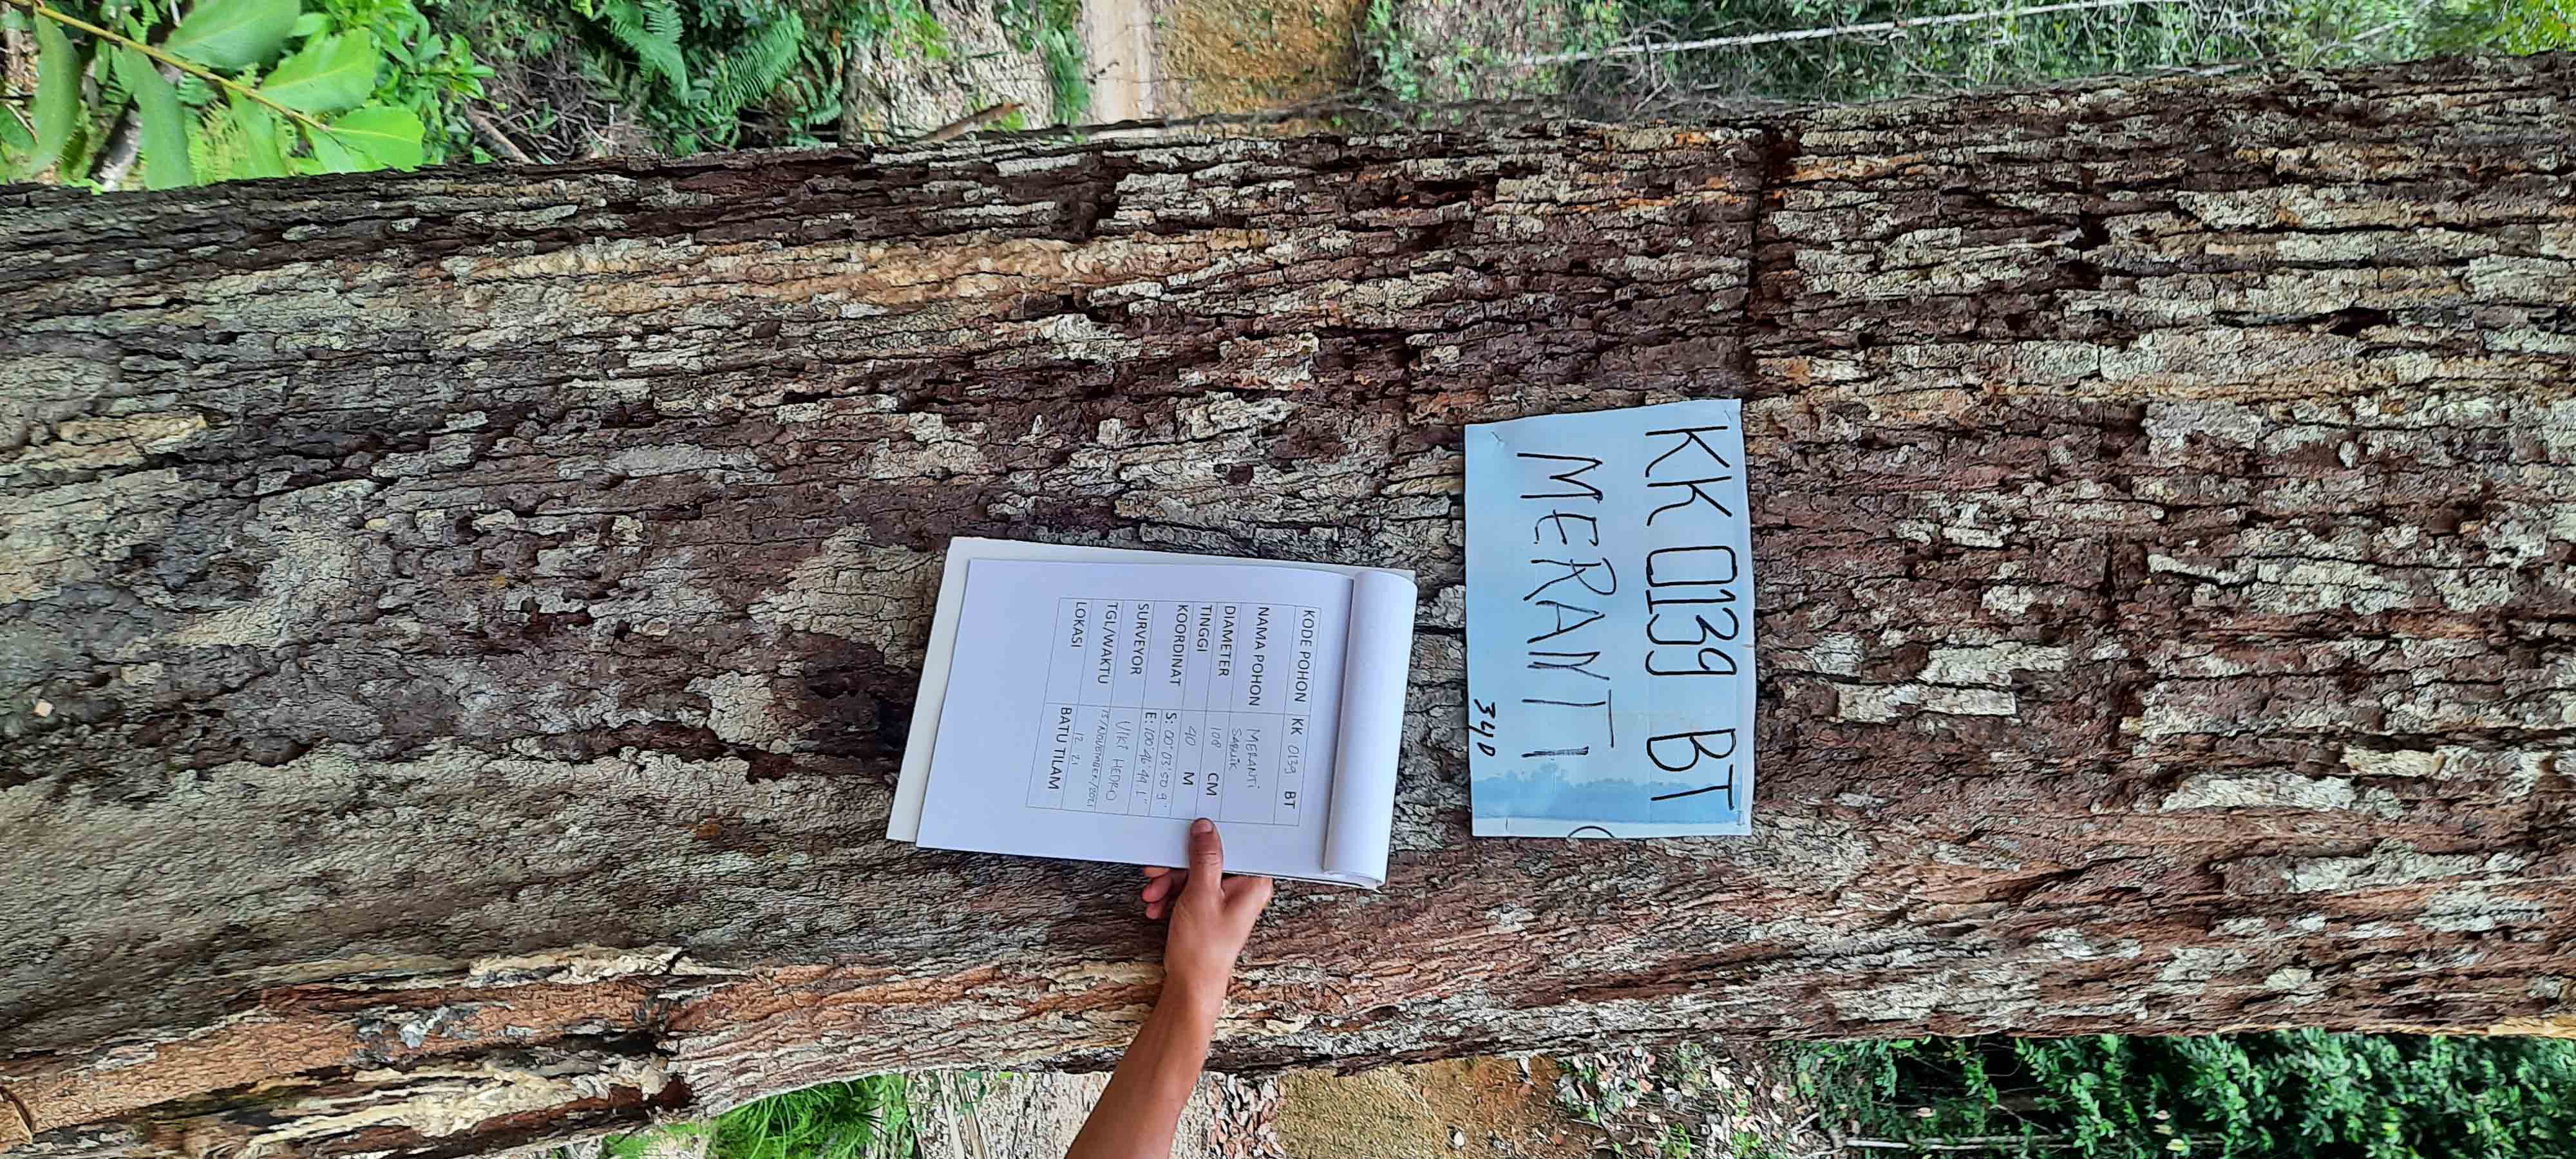 KK 0139 BT
MERANTI
340
KODE POHON KK 0139 BT
NAMA POHON MERANTI
SABLIK
DIAMETER 108 CM
TINGGI 40 M
KOORDINAT S: 00°03'50.9"
E: 100°46'49.1"
SURVEYOR VIKI HEDRO
TGL/WAKTU 15/NOVEMBER/2021
12 21
LOKASI BATU TILAM